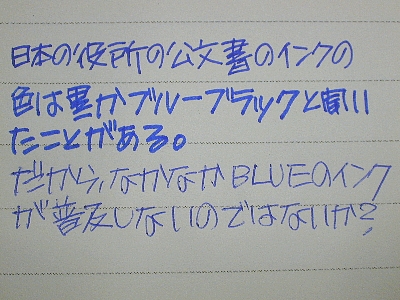 日本の役所の公文書のインクの
色は黒かブルーブラックと聞い
たことがある。
だから,なかなかBLUEのインク
が普及しないのではないか?